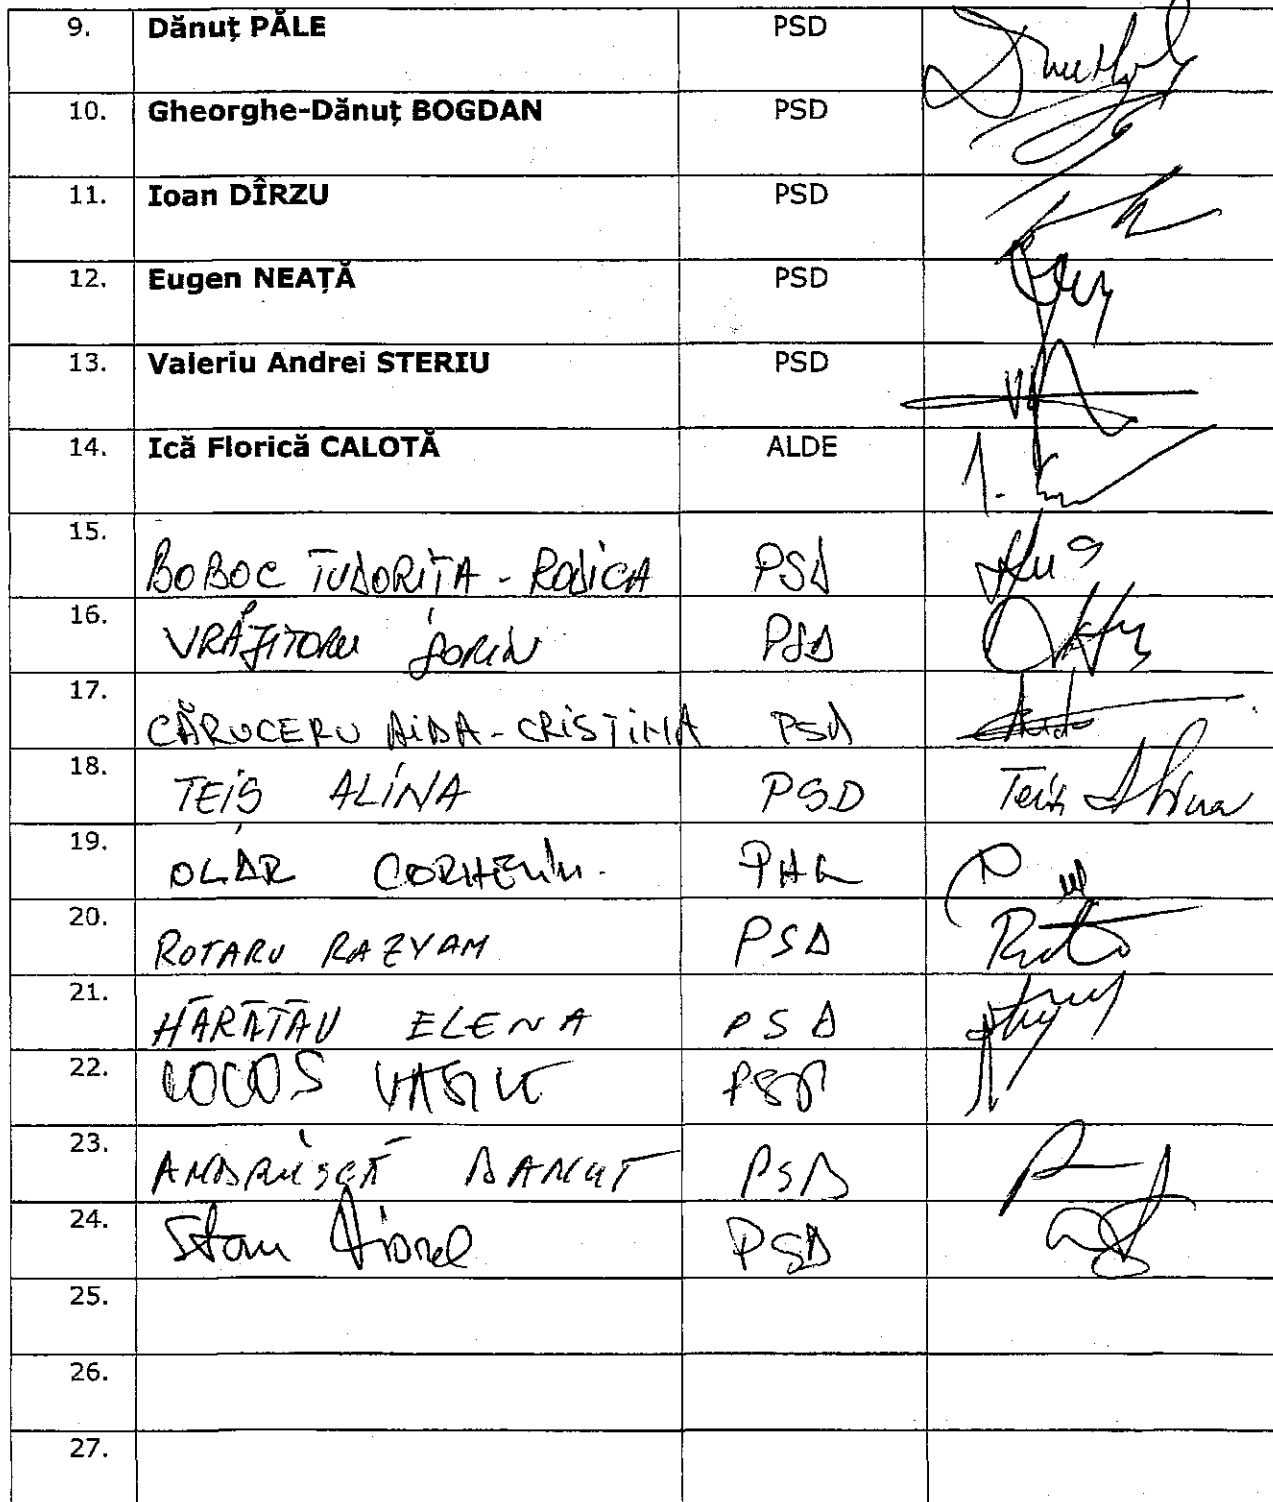 9. Dănuț PĂLE PSD
10. Gheorghe-Dănuț BOGDAN PSD
11. Ioan DÎRZU PSD
12. Eugen NEAȚĂ PSD
13. Valeriu Andrei STERIU PSD
14. Ică Florică CALOTĂ ALDE
15. BOBOC TUDORIȚA - RODICA PSD
16. VRĂJITORU SORIN PSD
17. CĂRUCERU AIDA-CRISTINA PSD
18. TEIȘ ALINA PSD Teiș Alina
19. OLAR CORNELIU PNL
20. ROTARU RAZVAN PSD
21. HĂRĂTĂU ELENA PSD
22. COCOȘ VASILE PSD
23. ANDRUȘCĂ DANUT PSD
24. Stan Viorel PSD
25.
26.
27.